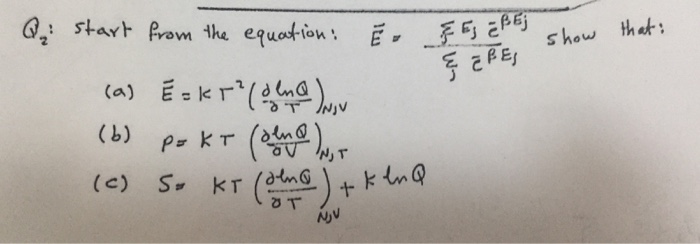 Q₂: start from the equation: Ē = Σⱼ Eⱼ e^-βEⱼ / Σⱼ e^-βEⱼ show that:
(a) Ē = kT² (∂lnQ/∂T)N,V
(b) p = kT (∂lnQ/∂V)N,T
(c) S = kT (∂lnQ/∂T)N,V + k lnQ